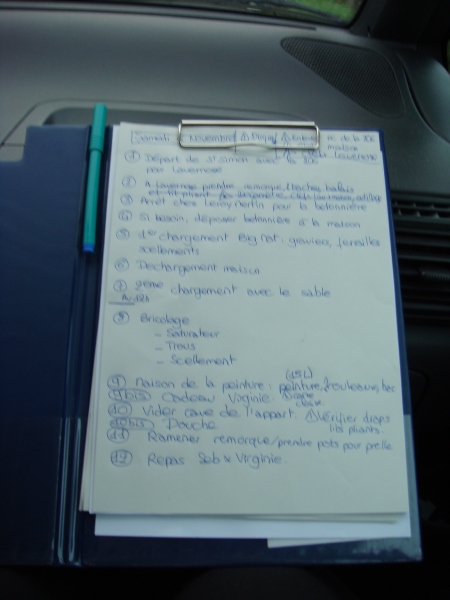 Samedi Novembre
maison
① Départ de St Simon avec la 806
pour Lavernose
② A Lavernose prendre remorque / baches, balais
et lit pliant
③ Arrêt chez Leroy Merlin pour la bétonnière
④ Si besoin, déposer bétonnière à la maison
⑤ 1er chargement Big Mat : graviers, ferrailles
scellements
⑥ Déchargement maison
⑦ 2ème chargement avec le sable
Av 12h
⑧ Bricolage
- Saturateur
- Trous
- Scellement
(15L)
⑨ Maison de la peinture : peinture, rouleaux, bac
9bis Cadeau Virginie
10 Vider cave de l'appart. ⚠ Vérifier draps
lits pliants.
10bis Douche
11 Ramener remorque / prendre pots pour prelle
12 Repas Seb & Virginie.